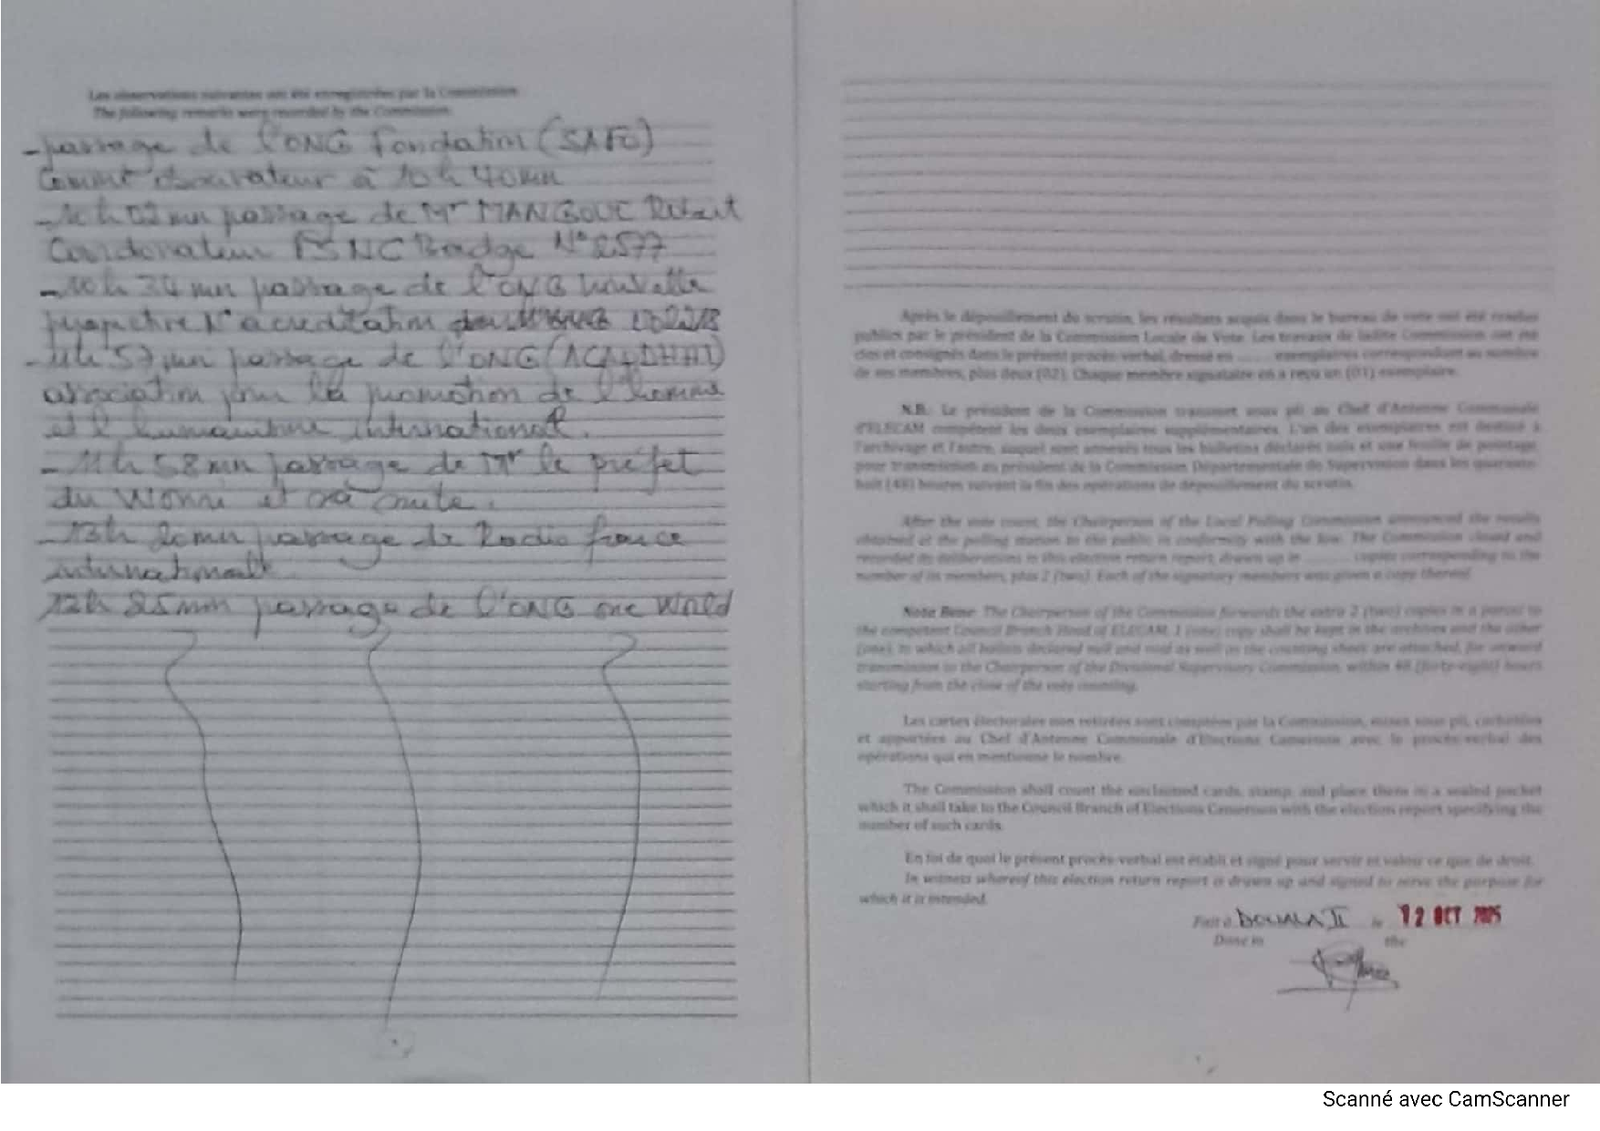 Les observations suivantes ont été enregistrées par la Commission
The following remarks were recorded by the Commission
- passage de l'ONG Fondation (SAFO)
Comme observateur à 10h 40mn
- 10h 02mn passage de Mr MANGOUE
Cordonateur Badge N° 2577
- 10h 34mn passage de l'ONG nouvelle
N° acreditation
- 11h 57mn passage de l'ONG
association pour la promotion de l'homme
et l' international.
- 11h 58mn passage de Mr le préfet
du Wouri et sa suite.
- 13h 20mn passage de Radio france
internationale
12h 25mn passage de l'ONG one World
Après le dépouillement du scrutin, les résultats acquis dans le bureau de vote ont été rendus
publics par le président de la Commission Locale de Vote. Les travaux de ladite Commission ont été
clos et consignés dans le présent procès-verbal, dressé en ........ exemplaires correspondant au nombre
de ses membres, plus deux (02). Chaque membre signataire en a reçu un (01) exemplaire.
N.B. Le président de la Commission transmet sous pli au Chef d'Antenne Communale
d'ELECAM compétent les deux exemplaires supplémentaires. L'un des exemplaires est destiné à
l'archivage et l'autre, auquel sont annexés tous les bulletins déclarés nuls et une feuille de pointage,
pour transmission au président de la Commission Départementale de Supervision dans les quarante-
huit (48) heures suivant la fin des opérations de dépouillement du scrutin.
After the vote count, the Chairperson of the Local Polling Commission announced the results
obtained at the polling station to the public in conformity with the law. The Commission closed and
recorded its deliberations in this election return report, drawn up in ........ copies corresponding to the
number of its members, plus 2 (two). Each of the signatory members was given a copy thereof.
Note Bene: The Chairperson of the Commission forwards the extra 2 (two) copies in a parcel to
the competent Council Branch Head of ELECAM. 1 (one) copy shall be kept in the archives and the other
(one), to which all ballots declared null and void as well as the counting sheet are attached, for onward
transmission to the Chairperson of the Divisional Supervisory Commission, within 48 (forty-eight) hours
starting from the close of the vote counting.
Les cartes électorales non retirées sont comptées par la Commission, mises sous pli, cachetées
et apportées au Chef d'Antenne Communale d'Elections Cameroon avec le procès-verbal des
opérations qui en mentionne le nombre.
The Commission shall count the unclaimed cards, stamp, and place them in a sealed packet
which it shall take to the Council Branch of Elections Cameroon with the election report specifying the
number of such cards.
En foi de quoi le présent procès-verbal est établi et signé pour servir et valoir ce que de droit.
In witness whereof this election return report is drawn up and signed to serve the purpose for
which it is intended.
Fait à DOUALA II le 12 OCT 2025
Done in the
Scanné avec CamScanner